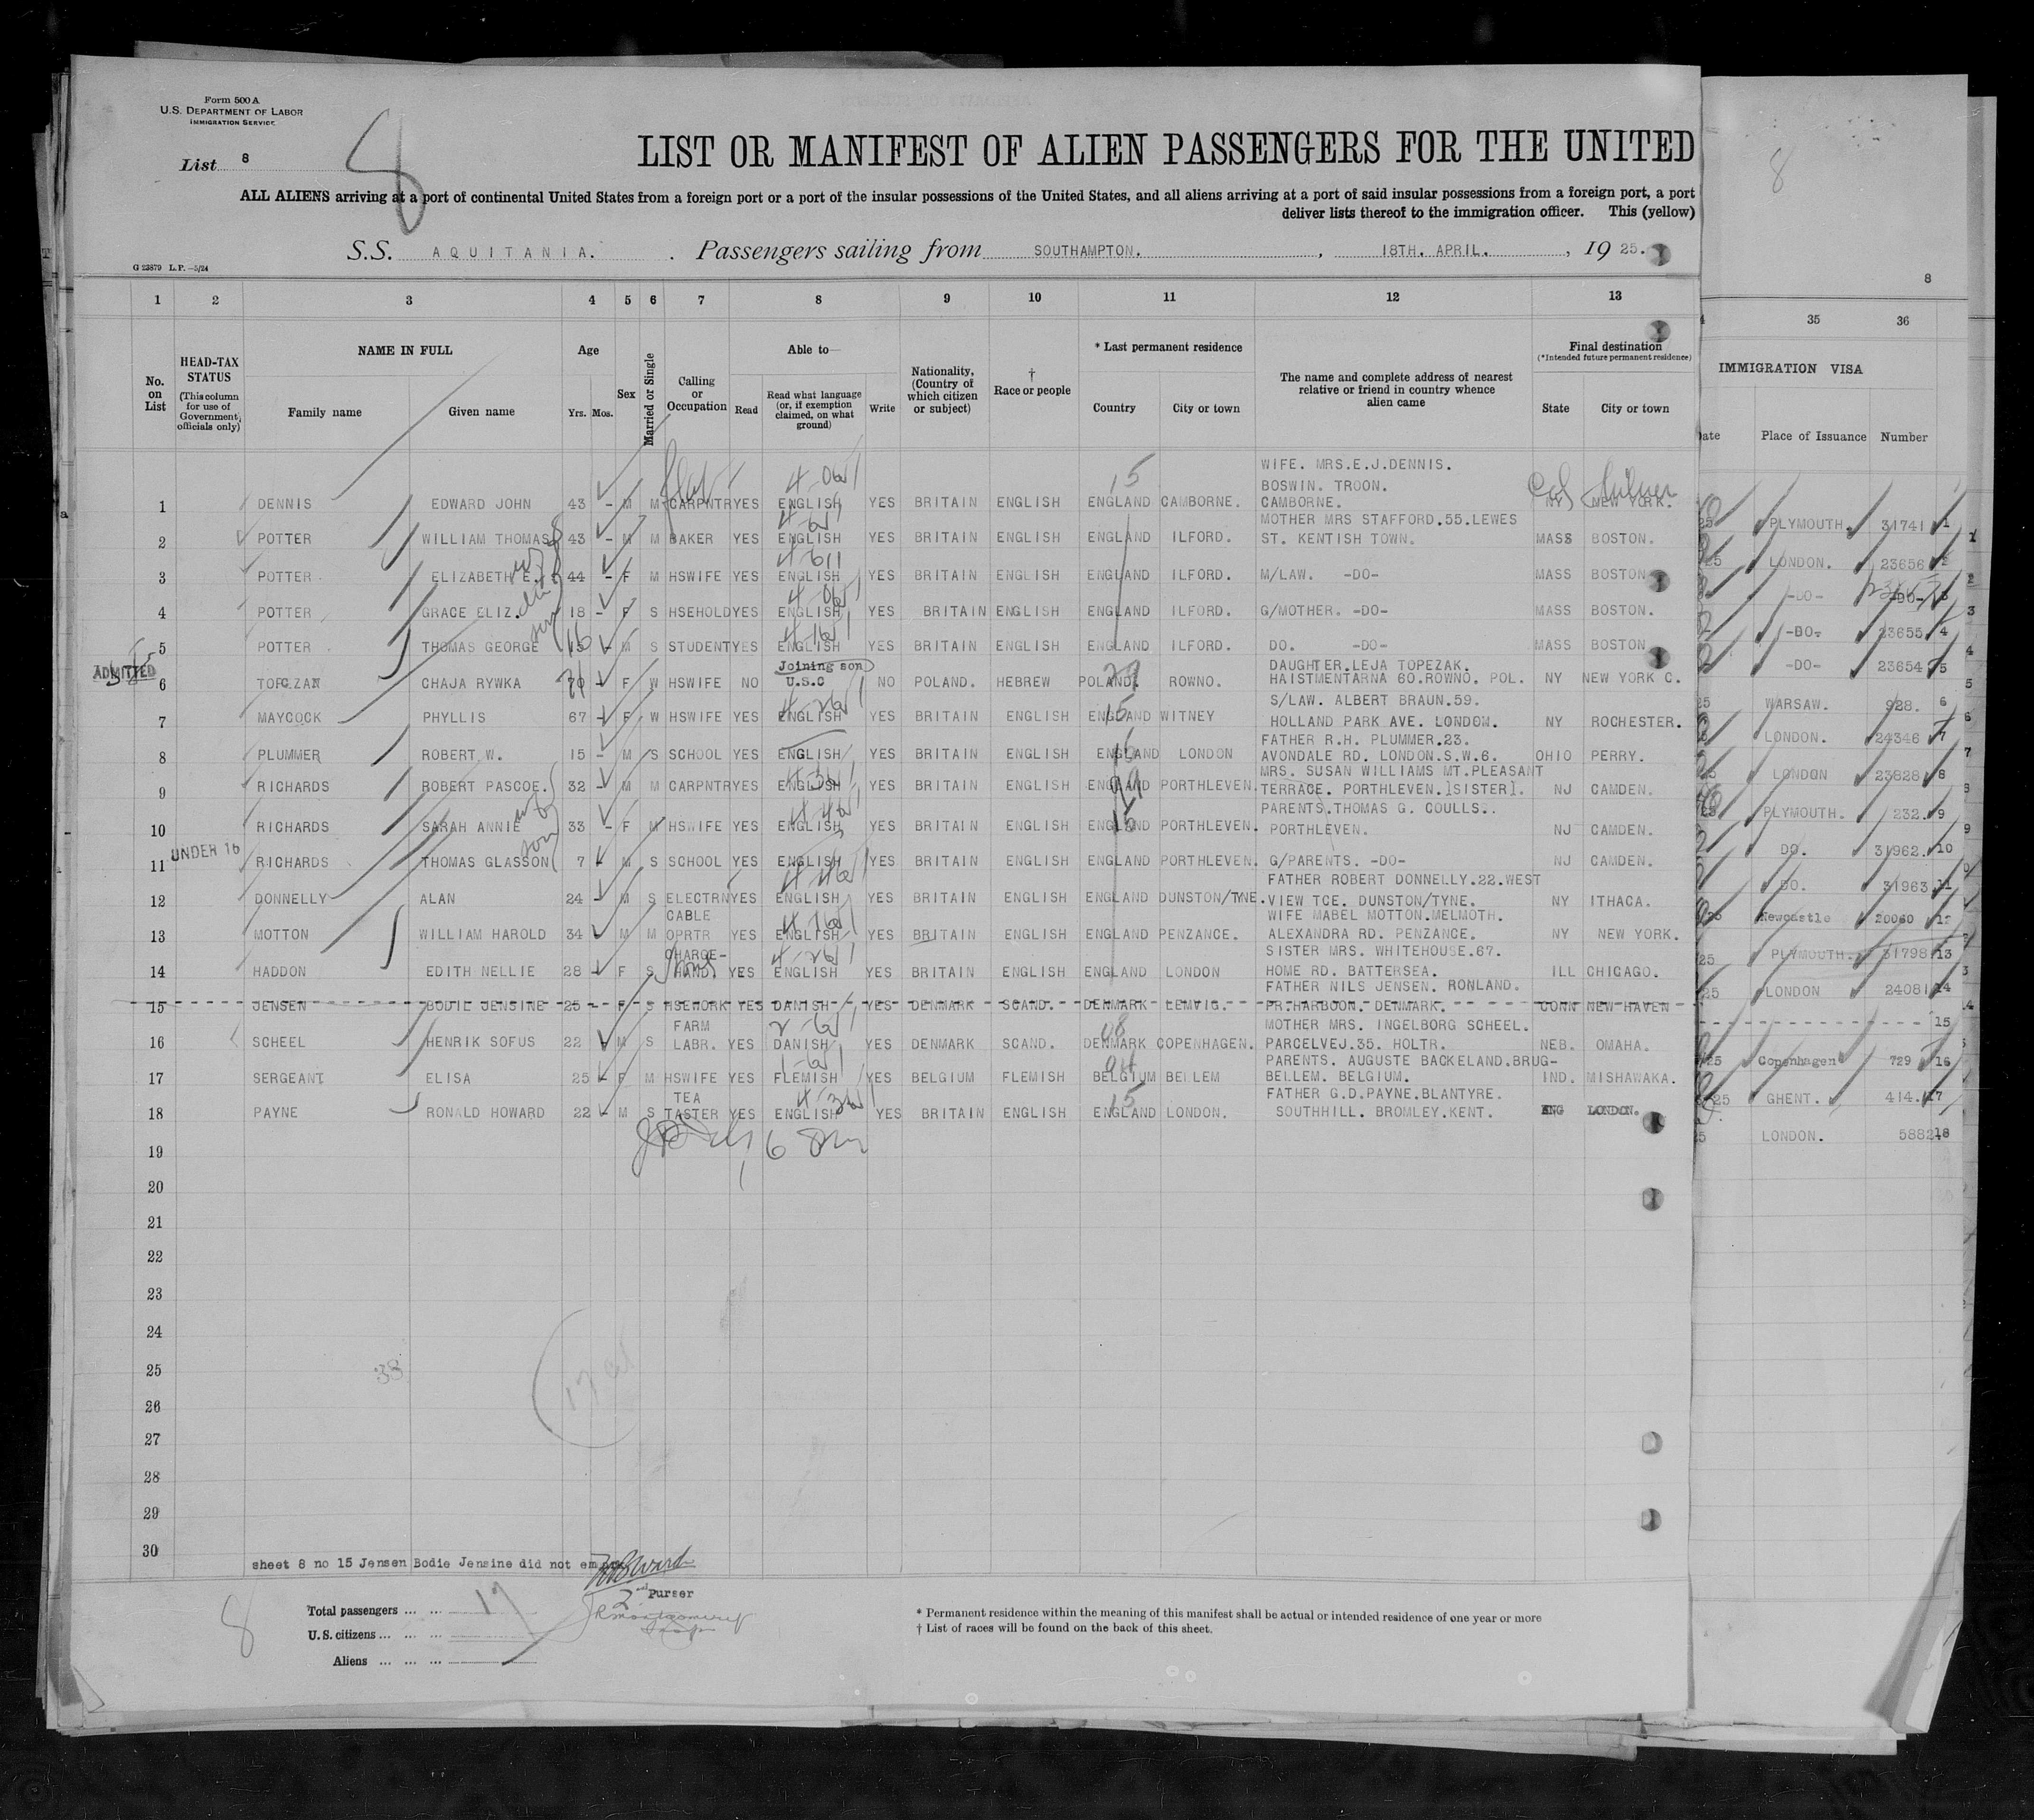 Form 500 A
U.S. DEPARTMENT OF LABOR
IMMIGRATION SERVICE
List 8
8
LIST OR MANIFEST OF ALIEN PASSENGERS FOR THE UNITED
ALL ALIENS arriving at a port of continental United States from a foreign port or a port of the insular possessions of the United States, and all aliens arriving at a port of said insular possessions from a foreign port, a port
deliver lists thereof to the immigration officer. This (yellow)
S.S. AQUITANIA. Passengers sailing from SOUTHAMPTON. , 18TH. APRIL. , 19 25.
G 23879 L.P.—5/24
8
8
1 2 3 4 5 6 7 8 9 10 11 12 13 35 36
No. on List
HEAD-TAX STATUS (This column for use of Government officials only)
NAME IN FULL Family name Given name
Age Yrs. Mos.
Sex
Married or Single
Calling or Occupation
Able to— Read Read what language (or, if exemption claimed, on what ground) Write
Nationality, (Country of which citizen or subject)
† Race or people
* Last permanent residence Country City or town
The name and complete address of nearest relative or friend in country whence alien came
Final destination (*Intended future permanent residence) State City or town
IMMIGRATION VISA Place of Issuance Number
WIFE. MRS.E.J.DENNIS.
BOSWIN. TROON.
1 DENNIS EDWARD JOHN 43 - M M CARPNTR YES ENGLISH YES BRITAIN ENGLISH ENGLAND CAMBORNE. CAMBORNE. NY NEW YORK. PLYMOUTH. 31741 1
MOTHER MRS STAFFORD.55.LEWES
2 POTTER WILLIAM THOMAS 43 - M M BAKER YES ENGLISH YES BRITAIN ENGLISH ENGLAND ILFORD. ST. KENTISH TOWN. MASS BOSTON. LONDON. 23656 2
3 POTTER ELIZABETH E. wife 44 - F M HSWIFE YES ENGLISH YES BRITAIN ENGLISH ENGLAND ILFORD. M/LAW. -DO- MASS BOSTON -DO- -DO- 3
4 POTTER GRACE ELIZ. 18 - F S HSEHOLD YES ENGLISH YES BRITAIN ENGLISH ENGLAND ILFORD. G/MOTHER. -DO- MASS BOSTON. -DO- 23655 4
5 POTTER THOMAS GEORGE son M S STUDENT YES ENGLISH YES BRITAIN ENGLISH ENGLAND ILFORD. DO. -DO- MASS BOSTON -DO- 23654 5
ADMITTED
Joining son
DAUGHTER.LEJA TOPEZAK.
6 CHAJA RYWKA F W HSWIFE NO U.S.C NO POLAND. HEBREW POLAND. ROWNO. HAISTMENTARNA 60.ROWNO. POL. NY NEW YORK C. WARSAW. 928. 6
S/LAW. ALBERT BRAUN.59.
7 MAYCOCK PHYLLIS 67 - F W HSWIFE YES ENGLISH YES BRITAIN ENGLISH ENGLAND WITNEY HOLLAND PARK AVE. LONDON. NY ROCHESTER. LONDON. 24346 7
FATHER R.H. PLUMMER.23.
8 PLUMMER ROBERT W. 15 - M S SCHOOL YES ENGLISH YES BRITAIN ENGLISH ENGLAND LONDON AVONDALE RD. LONDON.S.W.6. OHIO PERRY. LONDON 23828 8
MRS. SUSAN WILLIAMS MT.PLEASANT
9 RICHARDS ROBERT PASCOE. 32 - M M CARPNTR YES ENGLISH YES BRITAIN ENGLISH ENGLAND PORTHLEVEN. TERRACE. PORTHLEVEN. ]SISTER]. NJ CAMDEN. PLYMOUTH. 232. 9
PARENTS.THOMAS G. COULLS..
10 RICHARDS SARAH ANNIE wife 33 - F M HSWIFE YES ENGLISH YES BRITAIN ENGLISH ENGLAND PORTHLEVEN. PORTHLEVEN. NJ CAMDEN. DO. 31962. 10
UNDER 16
11 RICHARDS THOMAS GLASSON son 7 - M S SCHOOL YES ENGLISH YES BRITAIN ENGLISH ENGLAND PORTHLEVEN. G/PARENTS. -DO- NJ CAMDEN. DO. 31963 11
FATHER ROBERT DONNELLY.22.WEST
12 DONNELLY ALAN 24 - M S ELECTRN YES ENGLISH YES BRITAIN ENGLISH ENGLAND DUNSTON/TYNE. VIEW TCE. DUNSTON/TYNE. NY ITHACA. Newcastle 20060 12
CABLE WIFE MABEL MOTTON.MELMOTH.
13 MOTTON WILLIAM HAROLD 34 M M OPRTR YES ENGLISH YES BRITAIN ENGLISH ENGLAND PENZANCE. ALEXANDRA RD. PENZANCE. NY NEW YORK. PLYMOUTH. 31798 13
CHARGE- SISTER MRS. WHITEHOUSE.67.
14 HADDON EDITH NELLIE 28 - F S HAND YES ENGLISH YES BRITAIN ENGLISH ENGLAND LONDON HOME RD. BATTERSEA. ILL CHICAGO. LONDON 24081 14
FATHER NILS JENSEN. RONLAND.
15 JENSEN BODIL JENSINE 25 - F S HSEWORK YES DANISH YES DENMARK SCAND. DENMARK LEMVIG. PR.HARBOON. DENMARK. CONN NEW HAVEN 15
FARM MOTHER MRS. INGELBORG SCHEEL.
16 SCHEEL HENRIK SOFUS 22 M S LABR. YES DANISH YES DENMARK SCAND. DENMARK COPENHAGEN. PARCELVEJ.35. HOLTR. NEB. OMAHA. Copenhagen 729 16
PARENTS. AUGUSTE BACKELAND.BRUG-
17 SERGEANT ELISA 25 - F M HSWIFE YES FLEMISH YES BELGIUM FLEMISH BELGIUM BELLEM BELLEM. BELGIUM. IND. MISHAWAKA. GHENT. 414. 17
TEA FATHER G.D.PAYNE.BLANTYRE.
18 PAYNE RONALD HOWARD 22 - M S TASTER YES ENGLISH YES BRITAIN ENGLISH ENGLAND LONDON. SOUTHHILL. BROMLEY.KENT. ENG LONDON. LONDON. 5882 18
19
20
21
22
23
24
25
38
26
27
28
29
30
sheet 8 no 15 Jensen Bodie Jensine did not
2nd Purser
8
Total passengers ... ... 17
U.S. citizens ... ... ...
Aliens ... ... ...
* Permanent residence within the meaning of this manifest shall be actual or intended residence of one year or more
† List of races will be found on the back of this sheet.